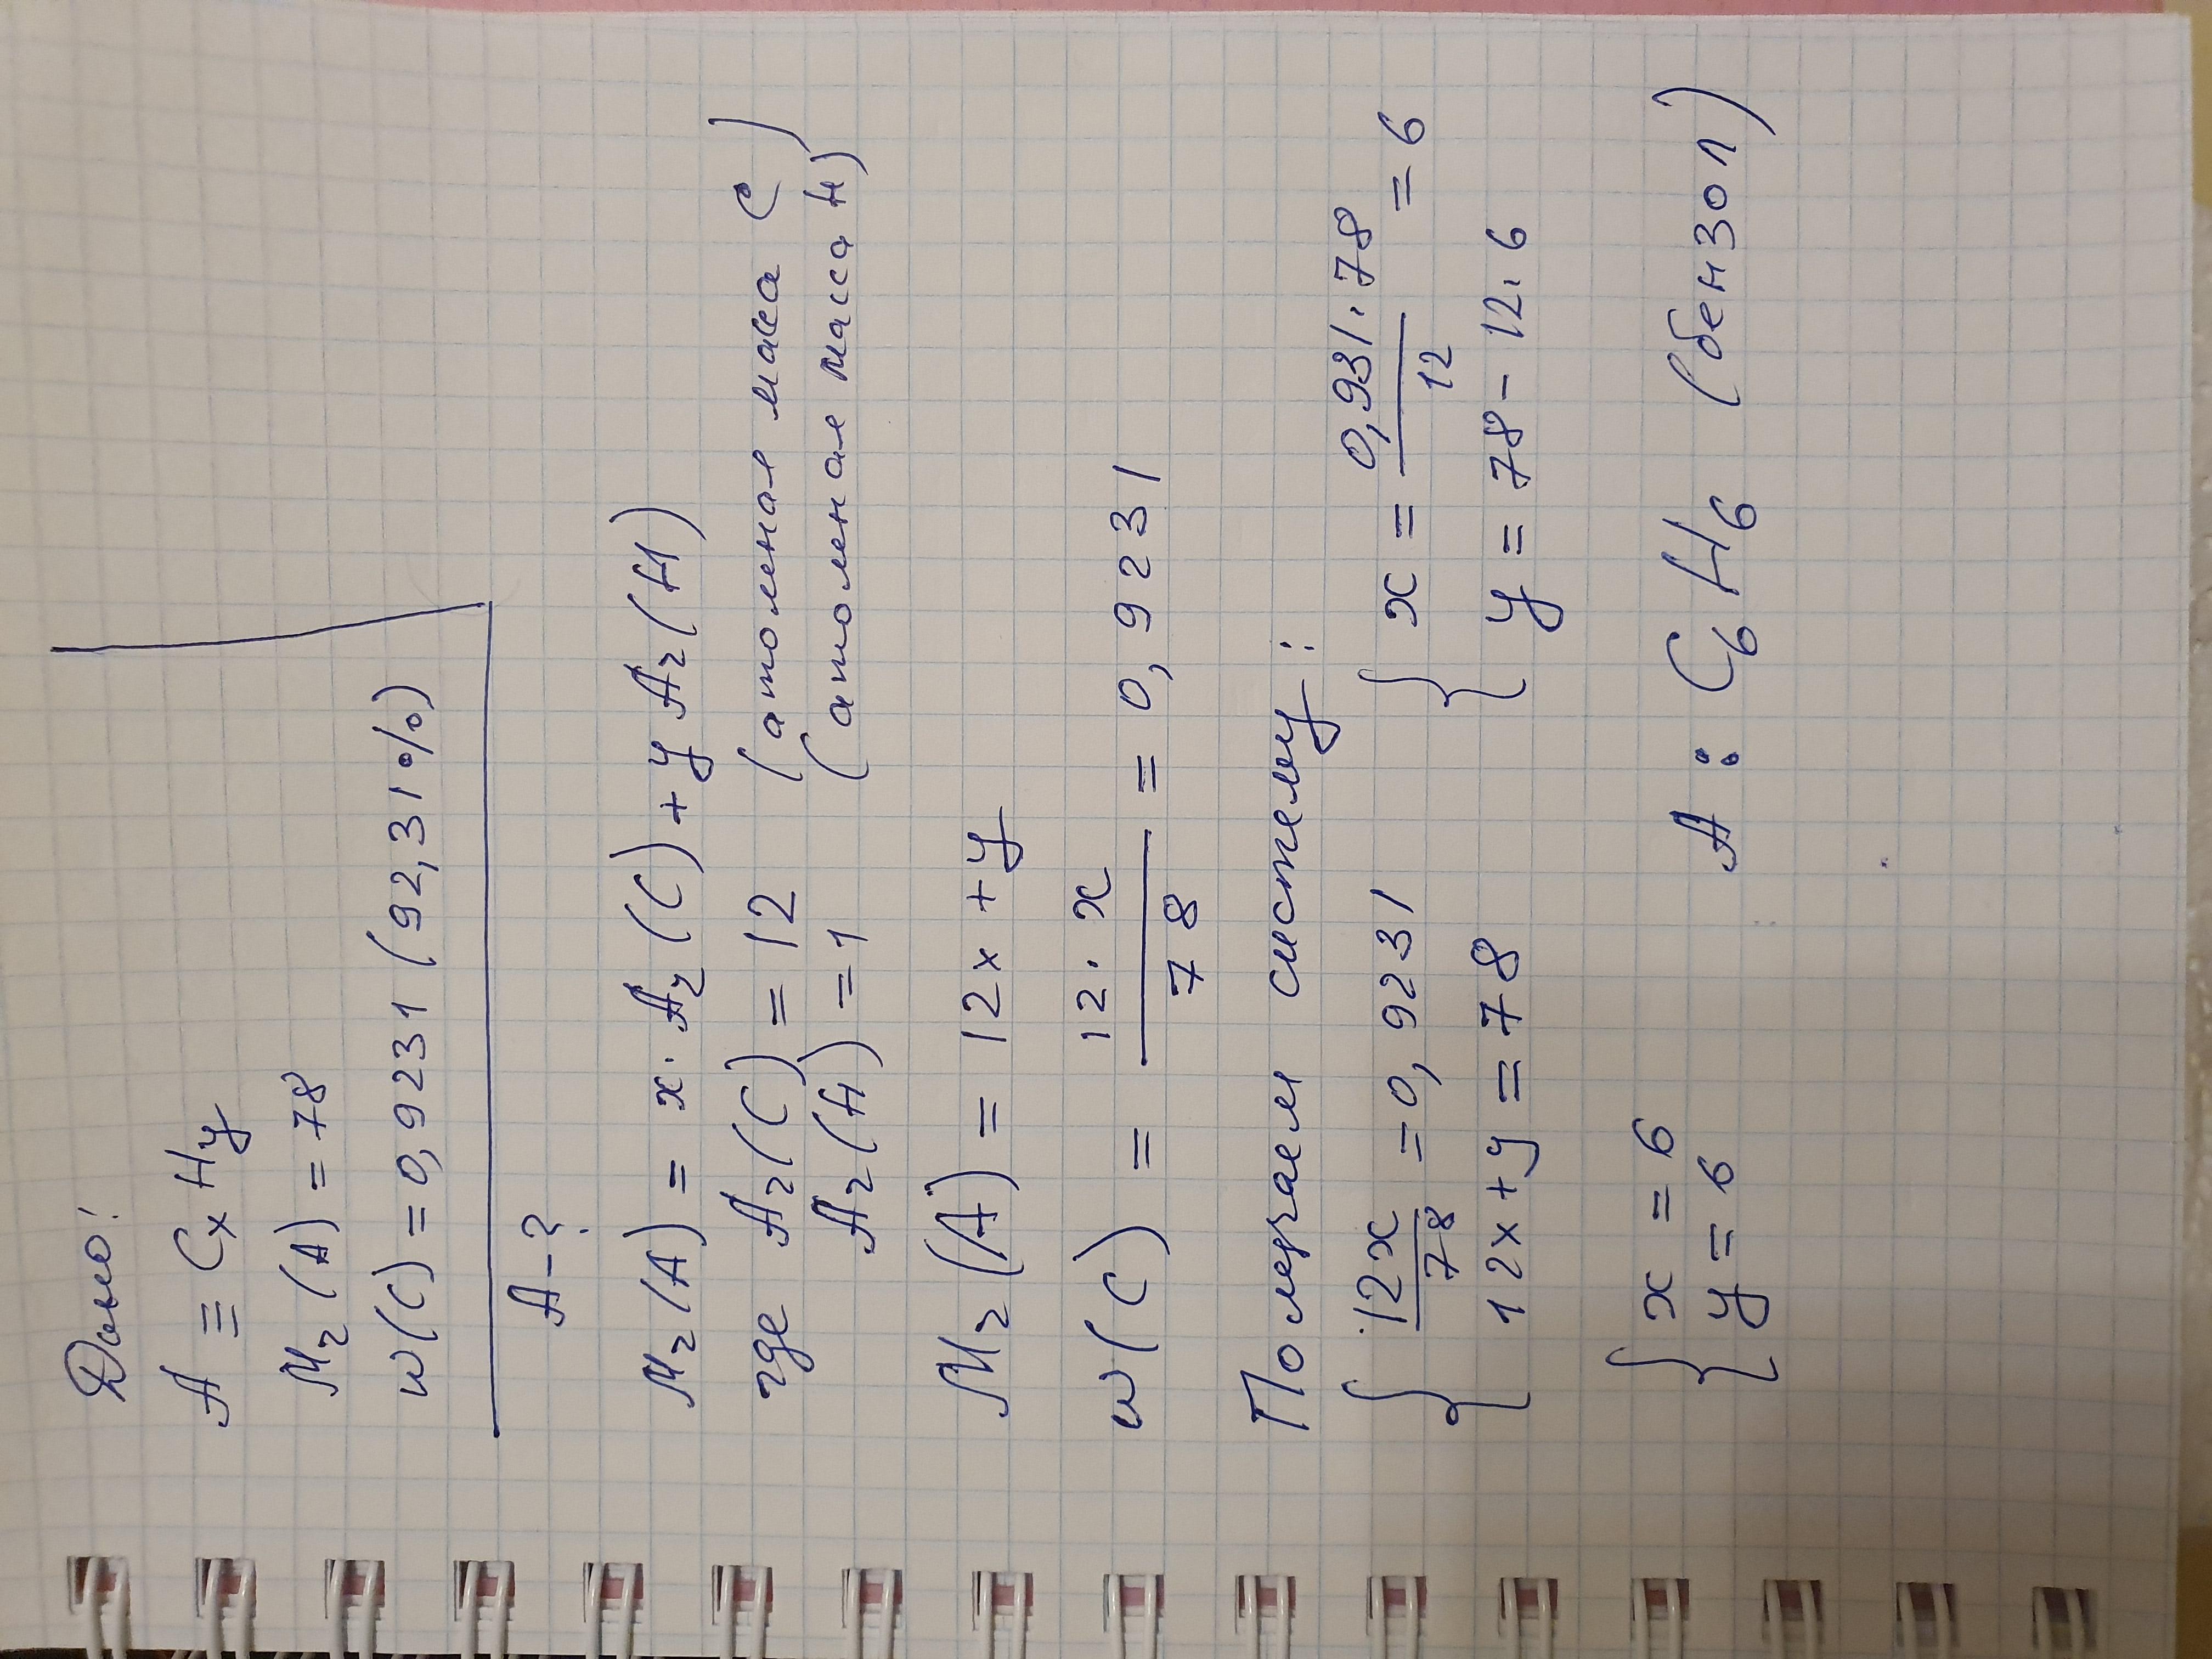 Дано:
A = CxHy
Mr(A) = 78
w(C) = 0,9231 (92,31%)
A - ?
Mr(A) = x · Ar(C) + y Ar(H)
где Ar(C) = 12 (атомная масса C)
Ar(H) = 1 (атомная масса H)
Mr(A) = 12x + y
w(C) = 12·x / 78 = 0,9231
Получаем систему:
{ 12x / 78 = 0,9231 { x = 0,931·78 / 12 = 6
12x + y = 78 y = 78 - 12·6
{ x = 6
y = 6 A: C6H6 (бензол)